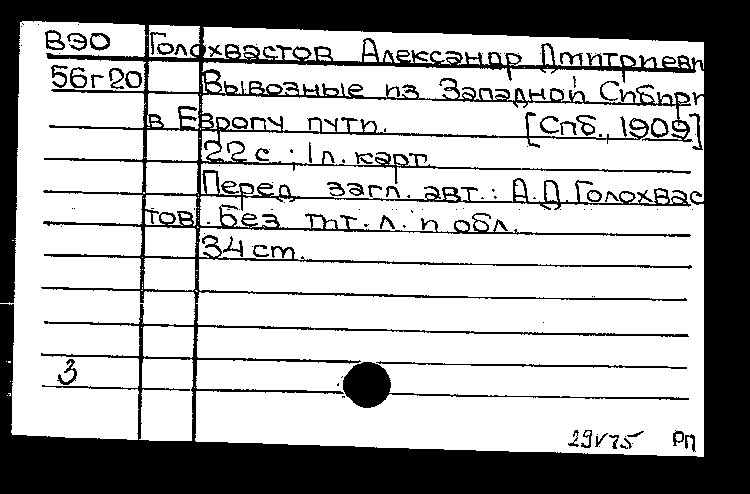 ВЭО Голохвастов Александр Дмитриеви
56г20 Вывозные из Западной Сибири
в Европу пути. [Спб., 1909]
22 с.; 1 л. карт.
Перед загл. авт.: А.Д.Голохвас
тов. Без тит. л. и обл.
34 cm.
3
29V75 РП